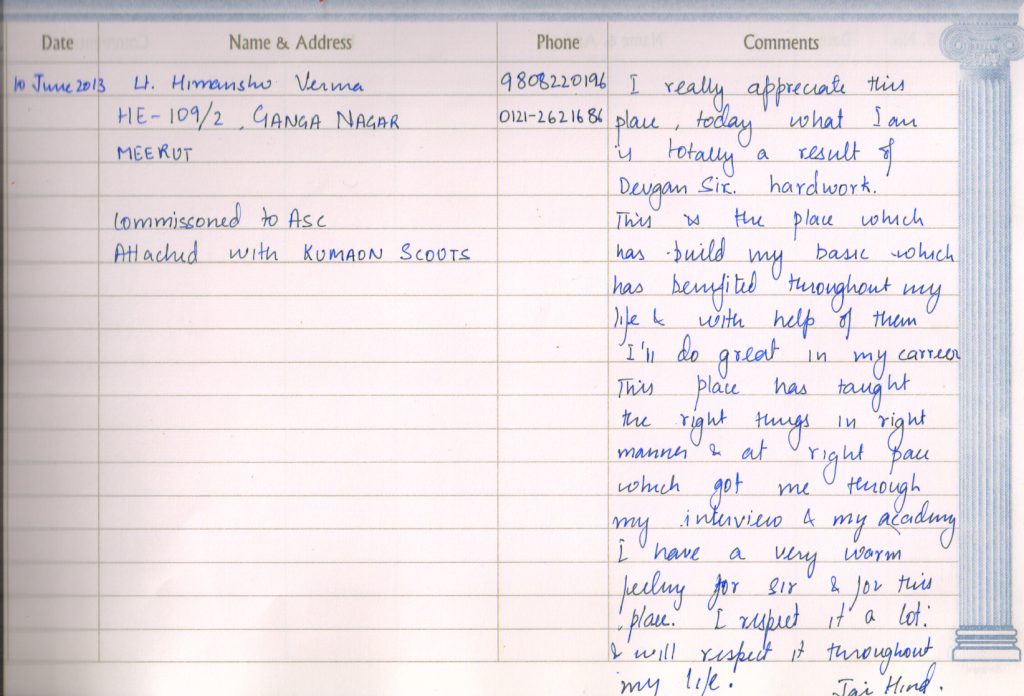 Date Name & Address Phone Comments
10 June 2013 Lt. Himansho Verma 9808220196 I really appreciate this
HE-109/2, GANGA NAGAR 0121-2621686 place, today what I am
MEERUT is totally a result of
Devgan Sir. hardwork.
Commissoned to Asc This is the place which
Attached with KUMAON SCOUTS has build my basic which
has benifited throughout my
life & with help of them
I'll do great in my carreer
This place has taught
the right things in right
manner & at right pace
which got me through
my interview & my academy
I have a very warm
feeling for sir & for this
place. I respect it a lot.
& will respect it throughout
my life. Jai Hind.